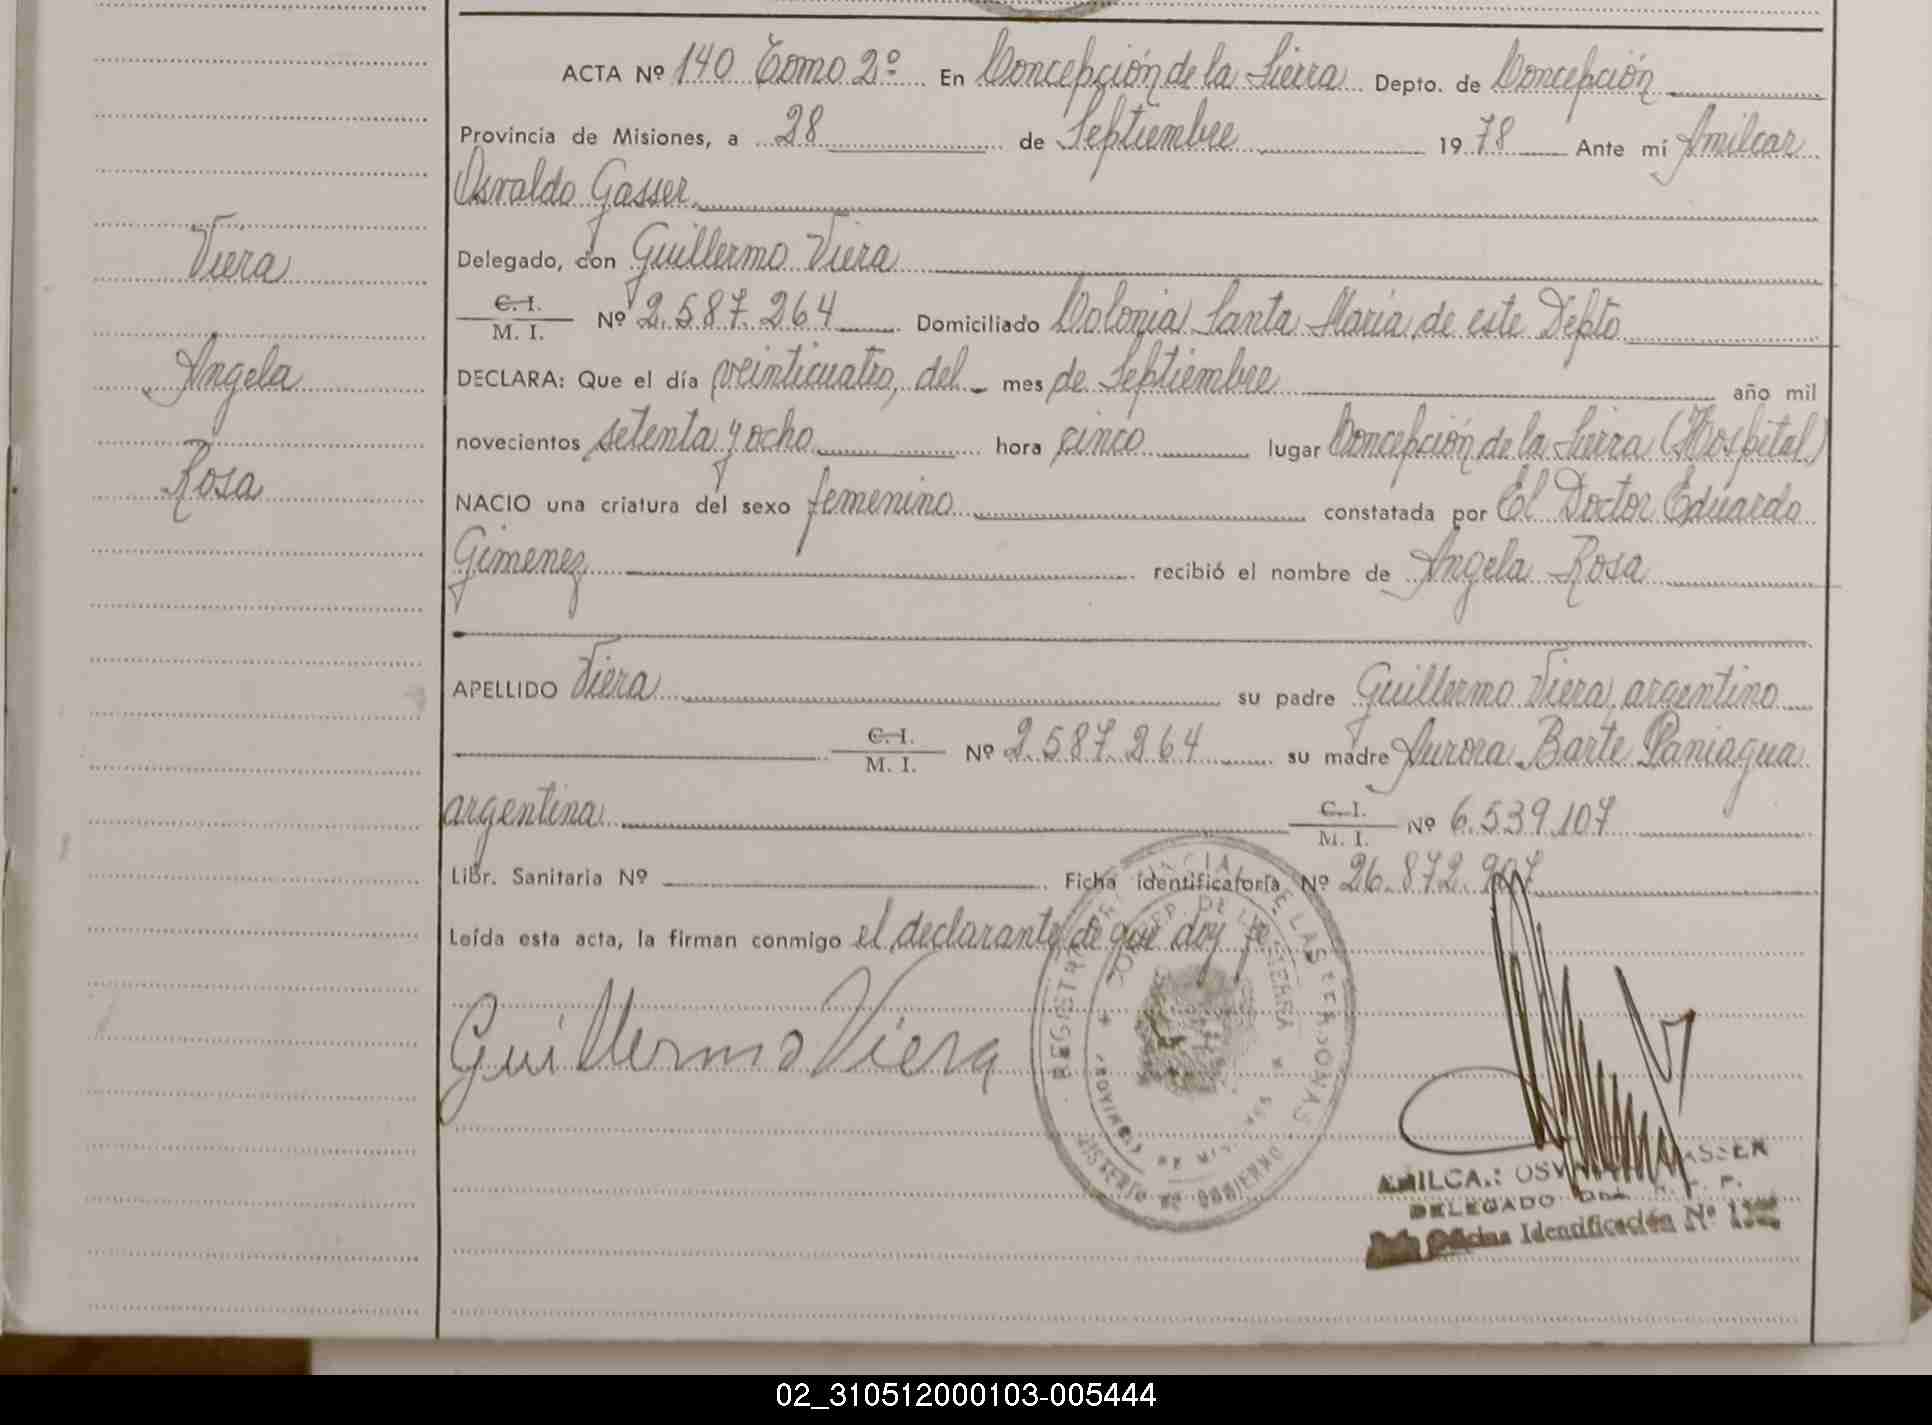 ACTA Nº 140 Tomo 2º En Concepción de la Sierra Depto. de Concepción
Provincia de Misiones, a 28 de Septiembre 1978 Ante mí Amilcar
Osvaldo Gasser
Delegado, con Guillermo Viera
Viera
C. I.
M. I. Nº 2.587.264 Domiciliado Colonia Santa María, de este Depto
Angela
DECLARA: Que el día veinticuatro, del mes de Septiembre año mil
novecientos setenta y ocho hora cinco lugar Concepción de la Sierra (Hospital)
Rosa
NACIO una criatura del sexo femenino constatada por El Doctor Eduardo
Gimenez recibió el nombre de Angela Rosa
APELLIDO Viera su padre Guillermo Viera, argentino
C. I.
M. I. Nº 2.587.264 su madre Aurora Barte Paniagua
argentina C. I.
M. I. Nº 6.539.107
Libr. Sanitaria Nº Ficha identificatoria Nº 26.872.907
Leída esta acta, la firman conmigo el declarante de que doy fe
Guillermo Viera
REGISTRO PROVINCIAL DE LAS PERSONAS
CONCEP. DE LA SIERRA
PROVINCIA DE MISIONES
MINISTERIO DE GOBIERNO
AMILCAR OSVALDO GASSER
DELEGADO DEL R. P.
Oficina Identificación Nº
02_310512000103-005444